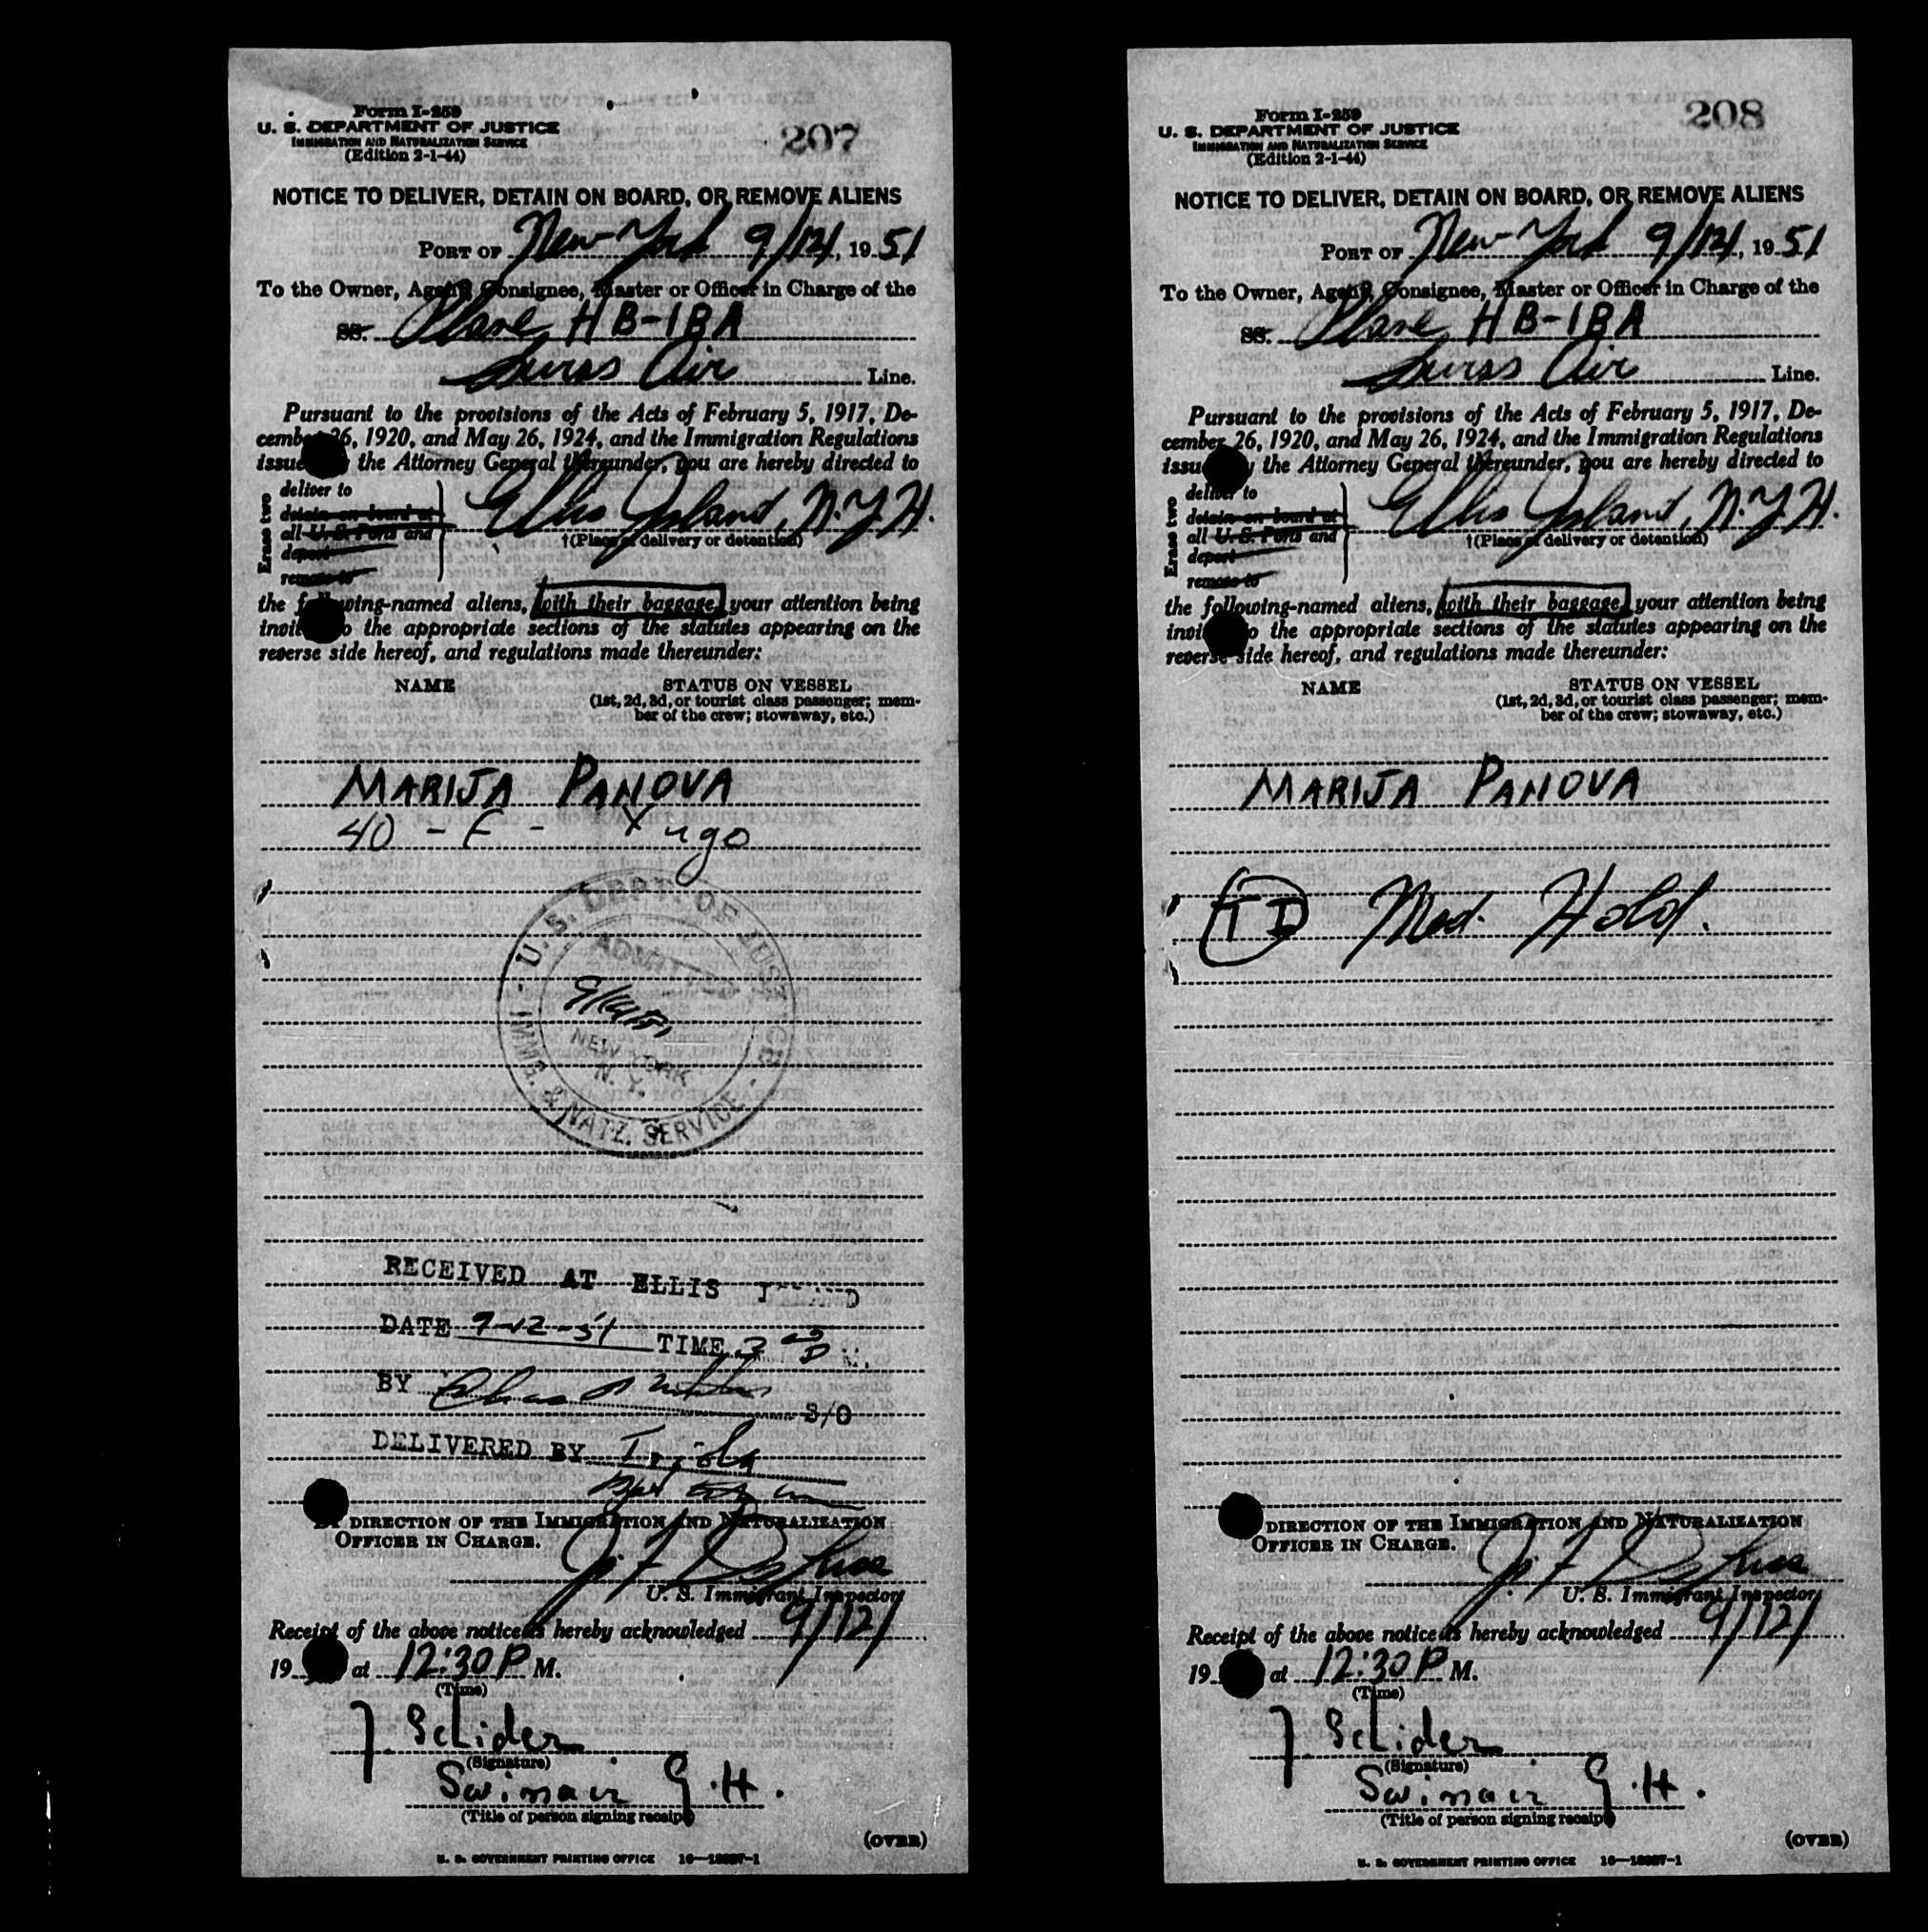 Form I-259
U. S. DEPARTMENT OF JUSTICE
IMMIGRATION AND NATURALIZATION SERVICE
(Edition 2-1-44)
207
NOTICE TO DELIVER, DETAIN ON BOARD, OR REMOVE ALIENS
PORT OF New York 9/12/, 1951
To the Owner, Agent, Consignee, Master or Officer in Charge of the
SS. Plane HB-IBA
Swiss Air Line.
Pursuant to the provisions of the Acts of February 5, 1917, De-
cember 26, 1920, and May 26, 1924, and the Immigration Regulations
issued the Attorney General thereunder, you are hereby directed to
Erase two
deliver to
detain on board at
all U. S. Ports and
deport
remove to
Ellis Island, N.Y.H.
†(Place of delivery or detention)
the following-named aliens, with their baggage, your attention being
invited to the appropriate sections of the statutes appearing on the
reverse side hereof, and regulations made thereunder:
NAME STATUS ON VESSEL
(1st, 2d, 3d, or tourist class passenger; mem-
ber of the crew; stowaway, etc.)
MARIJA PANOVA
40 - F - Yugo
U. S. DEPT. OF JUSTICE
ADMITTED
NEW YORK
N. Y.
IMMG. & NATZ. SERVICE
RECEIVED AT ELLIS ISLAND
DATE 9-12-51 TIME 3 00 P M.
BY S/O
DELIVERED BY
BY DIRECTION OF THE IMMIGRATION AND NATURALIZATION
OFFICER IN CHARGE.
U. S. Immigrant Inspector
Receipt of the above notice is hereby acknowledged 9/12/
19 at 12:30 P M.
(Time)
J. Schider
(Signature)
Swissair G.H.
(Title of person signing receipt)
(OVER)
U. S. GOVERNMENT PRINTING OFFICE
Form I-259
U. S. DEPARTMENT OF JUSTICE
IMMIGRATION AND NATURALIZATION SERVICE
(Edition 2-1-44)
208
NOTICE TO DELIVER, DETAIN ON BOARD, OR REMOVE ALIENS
PORT OF New York 9/12/, 1951
To the Owner, Agent, Consignee, Master or Officer in Charge of the
SS. Plane HB-IBA
Swiss Air Line.
Pursuant to the provisions of the Acts of February 5, 1917, De-
cember 26, 1920, and May 26, 1924, and the Immigration Regulations
issued by the Attorney General thereunder, you are hereby directed to
Erase two
deliver to
detain on board at
all U. S. Ports and
deport
remove to
Ellis Island, N.Y.H.
†(Place of delivery or detention)
the following-named aliens, with their baggage, your attention being
invited to the appropriate sections of the statutes appearing on the
reverse side hereof, and regulations made thereunder:
NAME STATUS ON VESSEL
(1st, 2d, 3d, or tourist class passenger; mem-
ber of the crew; stowaway, etc.)
MARIJA PANOVA
TD Med. Hold.
DIRECTION OF THE IMMIGRATION AND NATURALIZATION
OFFICER IN CHARGE.
U. S. Immigrant Inspector
Receipt of the above notice is hereby acknowledged 9/12/
19 at 12:30 P M.
(Time)
J. Schider
(Signature)
Swissair G.H.
(Title of person signing receipt)
(OVER)
U. S. GOVERNMENT PRINTING OFFICE